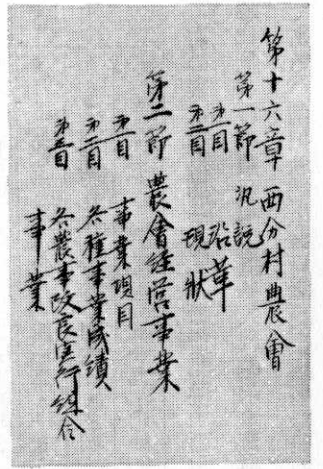 第十六章 西分村農會
第一節 汎説
第一目 沿革
第二目 現狀
第二節 農會経営事業
第一目 事業項目
第二目 各種事業成績
第三目 各農事改良実行組合
事業